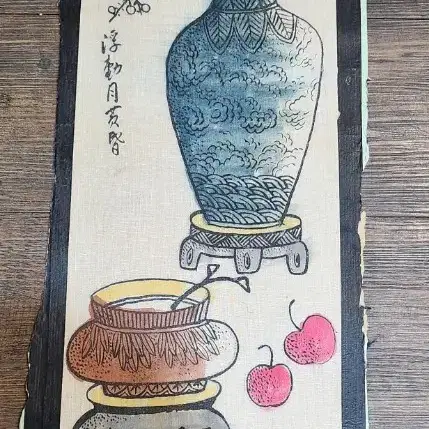 浮動月黃昏